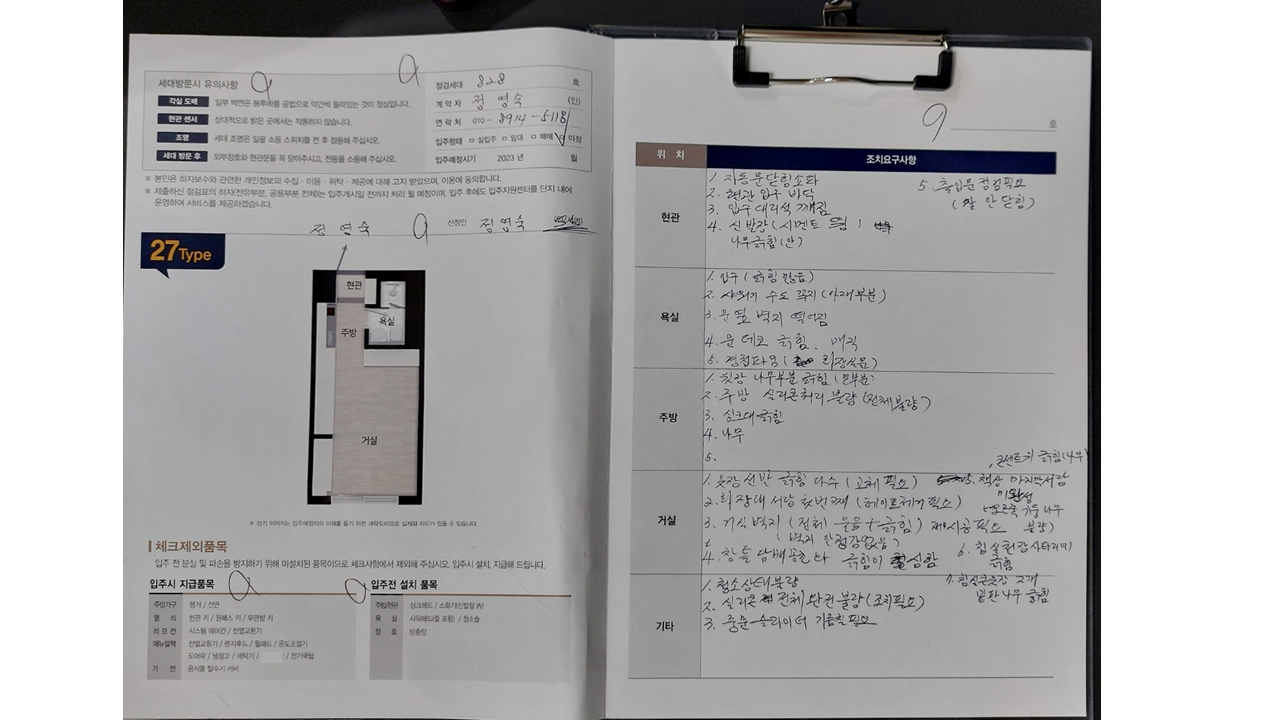 세대방문시 유의사항
각실 도배 일부 벽면은 봉투바름 공법으로 약간씩 들떠있는 것이 정상입니다.
현관 센서 상대적으로 밝은 곳에서는 작동하지 않습니다.
조명 세대 조명은 일괄 소등 스위치를 켠 후 점등해 주십시오.
세대 방문 후 외부창호와 현관문을 꼭 닫아주시고, 전등을 소등해 주십시오.
점검세대 828 호
계약자 정영숙 (인)
연락처 010-8914-5118
입주형태 □ 실입주 □ 임대 □ 매매 □ 미정
입주예정시기 2023 년 월
※ 본인은 하자보수와 관련한 개인정보의 수집·이용·위탁·제공에 대해 고지 받았으며, 이용에 동의합니다.
※ 제출하신 점검표의 하자(전유부분, 공용부분 전체)는 입주개시일 전까지 처리 될 예정이며, 입주 후에도 입주지원센터를 단지 내에
운영하여 서비스를 제공하겠습니다.
정영숙 신청인 정영숙
27Type
현관
욕실
주방
거실
※ 상기 이미지는 입주예정자의 이해를 돕기 위한 개략도이므로, 실제와 차이가 있을 수 있습니다.
체크제외품목
입주 전 분실 및 파손을 방지하기 위해 미설치된 품목이므로 체크사항에서 제외해 주십시오. 입주시 설치, 지급해 드립니다.
입주시 지급품목
주방가구 행거 / 선반
열쇠 현관 키 / 원패스 키 / 우편함 키
리모컨 시스템 에어컨 / 전열교환기
메뉴얼책 전열교환기 / 렌지후드 / 월패드 / 온도조절기
도어락 / 냉장고 / 세탁기 / / 전기쿡탑
가전 음식물 탈수기 커버
입주전 설치 품목
주방/현관 싱크헤드 / 소화기(신발장 內)
욕실 샤워헤드(줄 포함) / 청소솔
창호 방충망
9 호
위치 조치요구사항
현관
1. 자동문닫힘소리
2. 현관 입구 바닥
3. 입구 대리석 깨짐
4. 신발장 (시멘트 )
나무긁힘(안)
5. 출입문 점검필요
(잘 안 닫힘)
욕실
1. 입구 (긁힘 많음)
2. 샤워기 수도 꼭지 (아래부분)
3. 문 벽지 떨어짐
4. 문 긁힘.
5.
주방
1. 나무부분 긁힘
2. 주방 실리콘처리 불량(전체불량)
3. 싱크대긁힘
4. 나무
5.
거실
1. 옷장 선반 긁힘 다수 (교체 필요)
2. 화장대 서랍 첫번째 필요)
3. 벽지 (전체 불음 + 긁힘) 재시공필요
4. 창틀 긁힘이 심함
콘센트기 긁힘(나무)
5. 책상 마지막서랍
미완성
나무
불량)
6.
긁힘
7. 2개
밑판나무 긁힘
기타
1. 청소상태불량
2. 실리콘 전체 불량(조치필요)
3. 슬라이더 기름칠필요